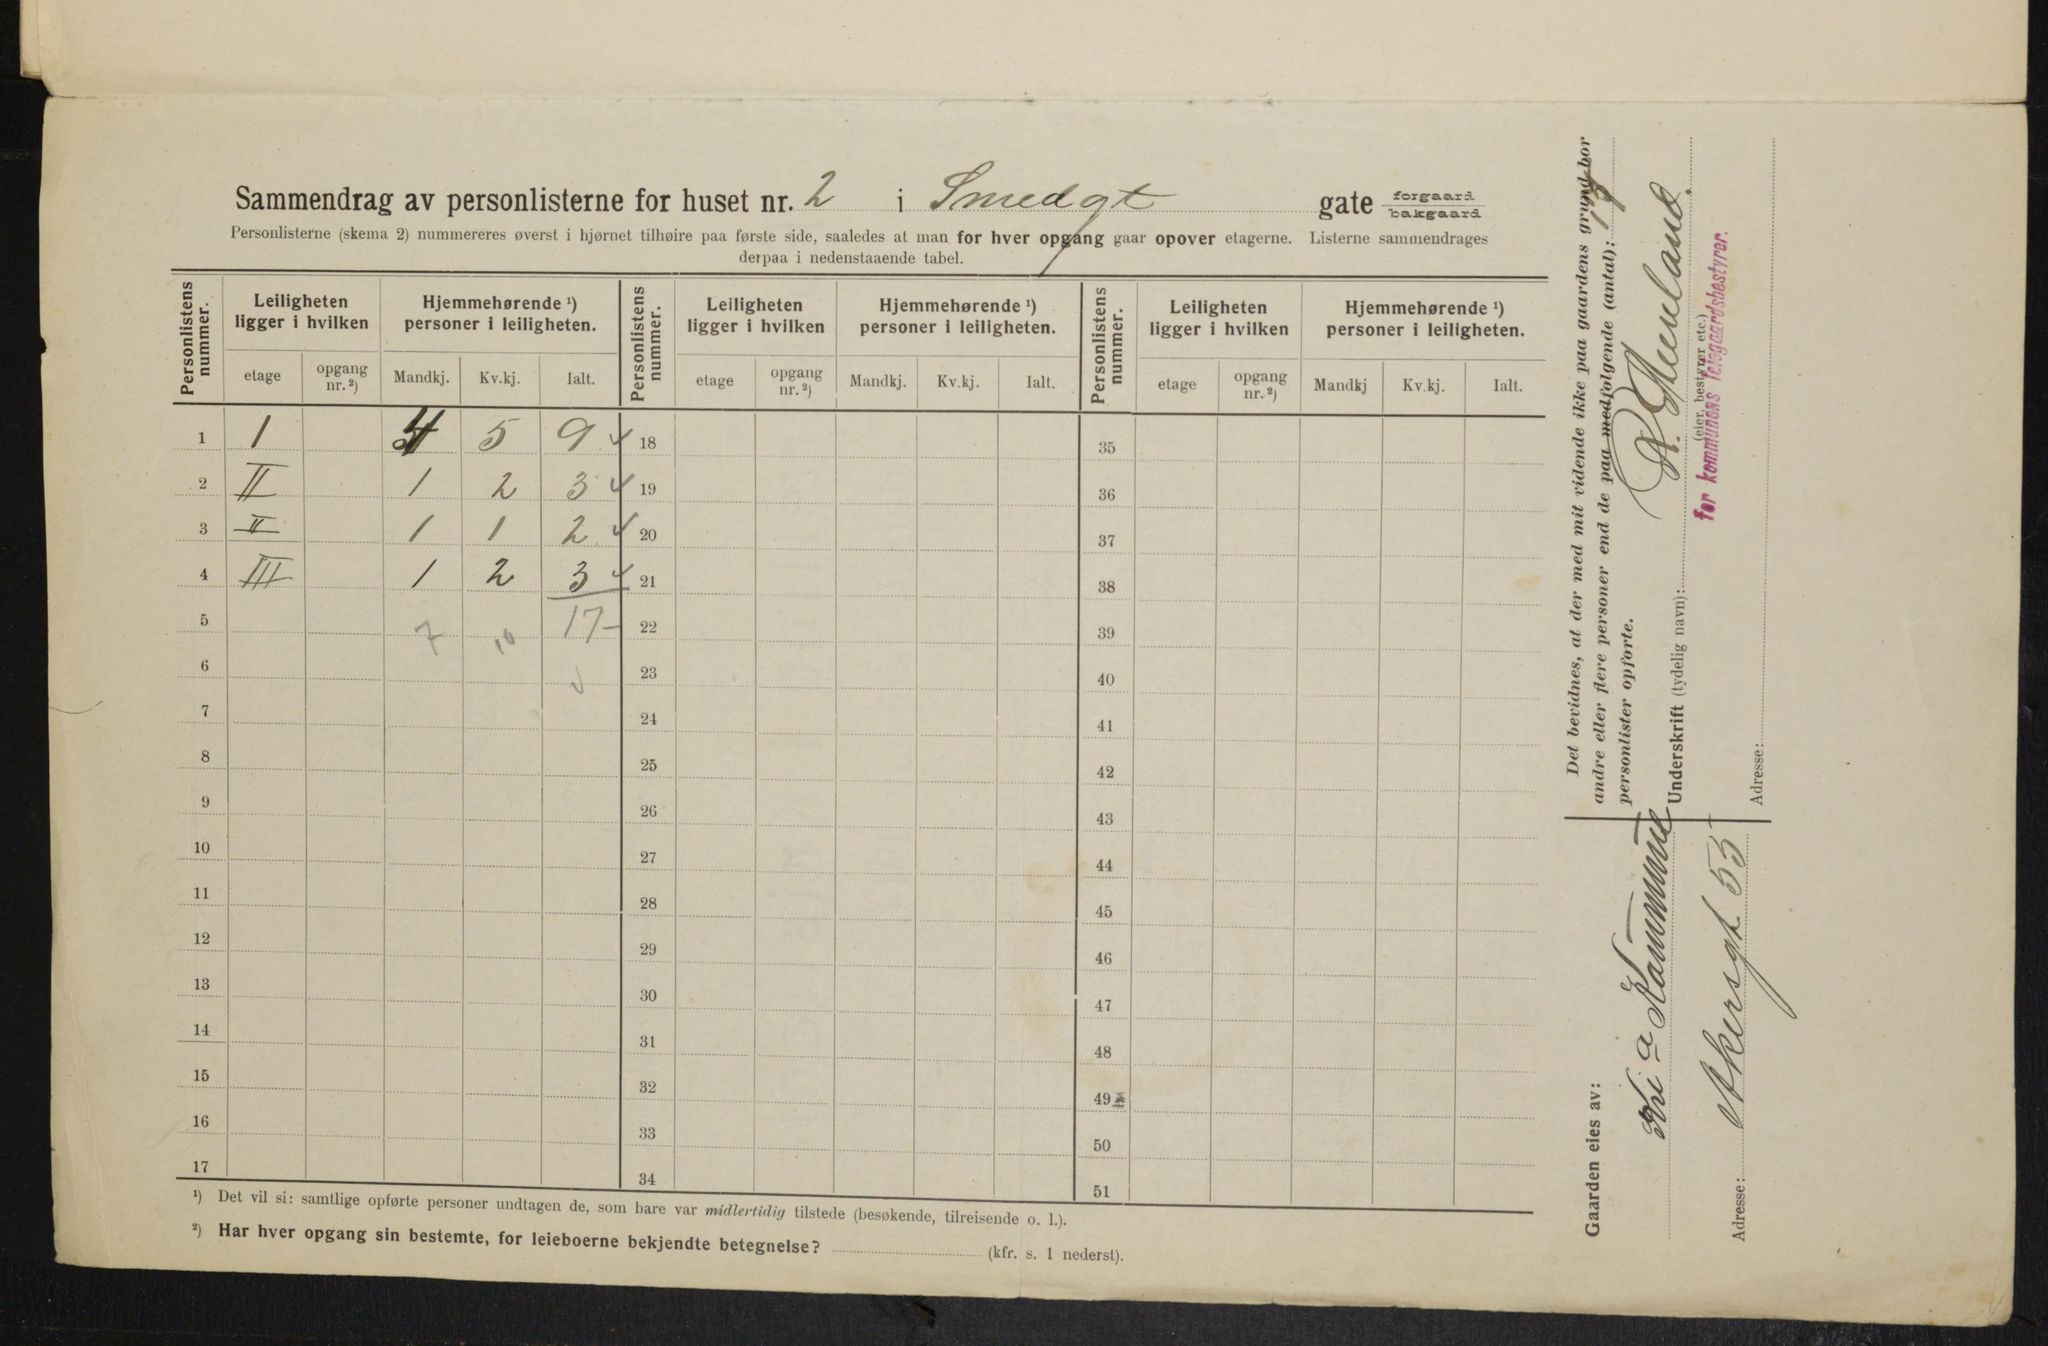 Sammendrag av personlisterne for huset nr. 2 i Smedgt gate forgaard bakgaard
Personlisterne (skema 2) nummereres øverst i hjørnet tilhøire paa første side, saaledes at man for hver opgang gaar opover etagerne. Listerne sammendrages
derpaa i nedenstaaende tabel.
Personlistens nummer. Leiligheten ligger i hvilken Hjemmehørende ¹) personer i leiligheten. Personlistens nummer. Leiligheten ligger i hvilken Hjemmehørende ¹) personer i leiligheten. Personlistens nummer. Leiligheten ligger i hvilken Hjemmehørende ¹) personer i leiligheten.
etage opgang nr. ²) Mandkj. Kv.kj. Ialt. etage opgang nr. ²) Mandkj. Kv.kj. Ialt. etage opgang nr. ²) Mandkj Kv.kj. Ialt.
1 I 4 5 9 18 35
2 II 1 2 3 19 36
3 II 1 1 2 20 37
4 III 1 2 3 21 38
5 7 10 17 22 39
6 23 40
7 24 41
8 25 42
9 26 43
10 27 44
11 28 45
12 29 46
13 30 47
14 31 48
15 32 49
16 33 50
17 34 51
¹) Det vil si: samtlige opførte personer undtagen de, som bare var midlertidig tilstede (besøkende, tilreisende o. l.).
²) Har hver opgang sin bestemte, for leieboerne bekjendte betegnelse? (kfr. s. 1 nederst).
Det bevidnes, at der med mit vidende ikke paa gaardens grund bor
andre eller flere personer end de paa medfølgende (antal):
personlister opførte.
Underskrift (tydelig navn):
(eier, bestyrer etc.)
for kommunens leiegaardsbestyrer.
Adresse:
Gaarden eies av:
Kri a Kommune
Adresse: Akersgt. 55